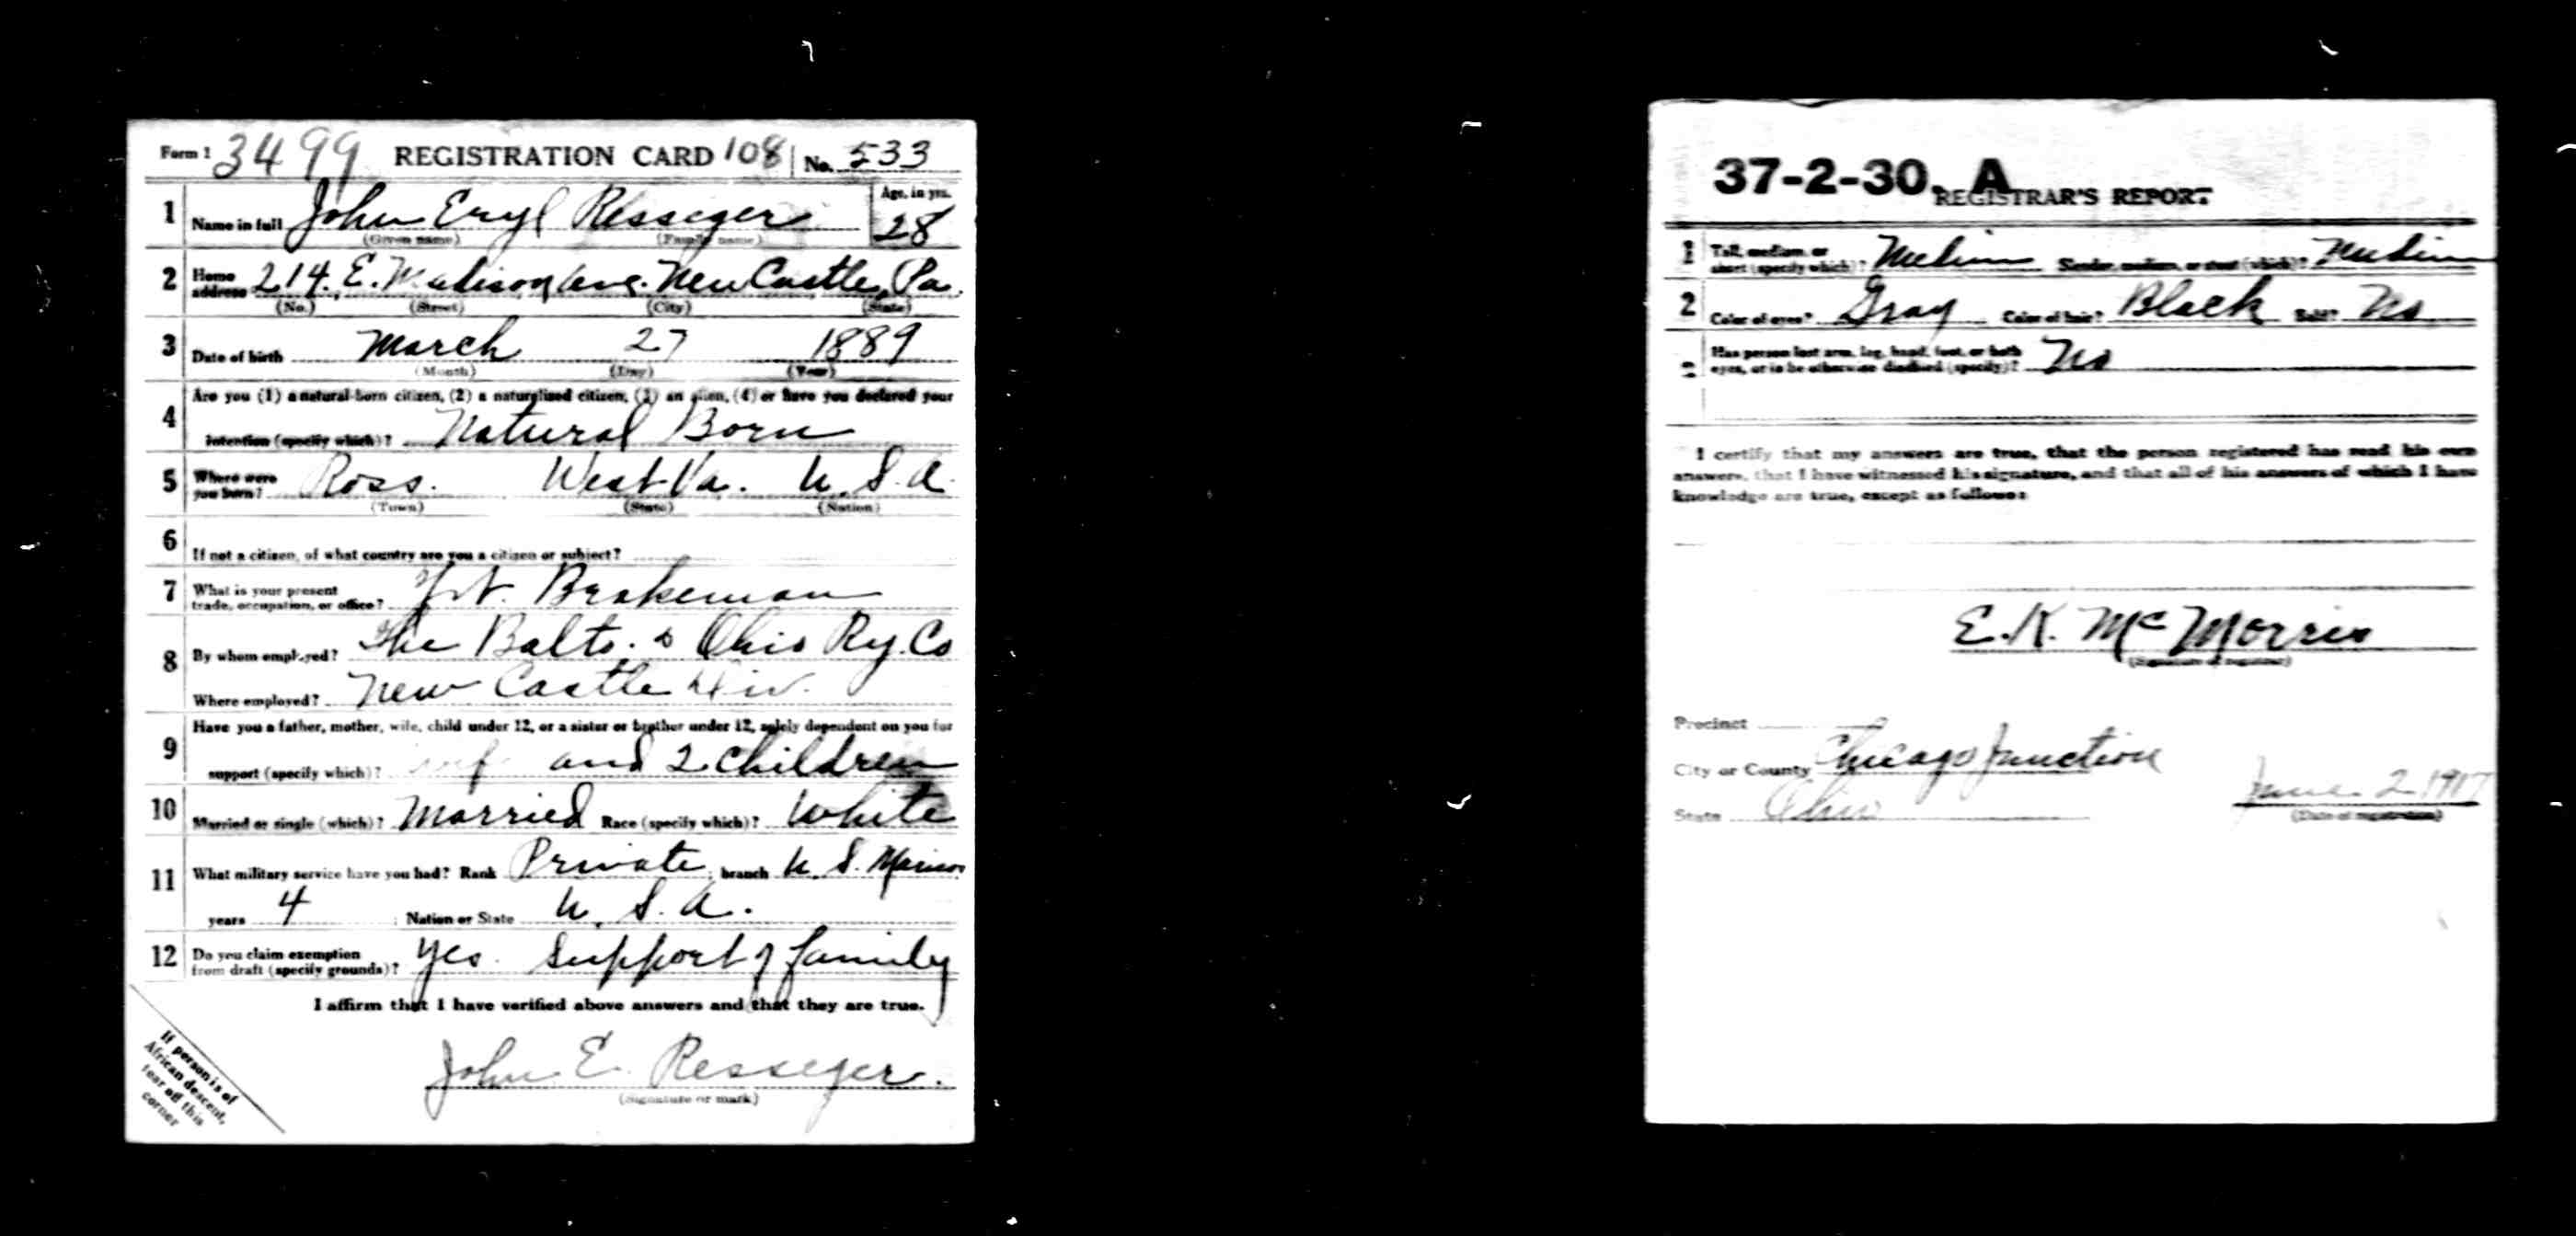 Form 1 3499 REGISTRATION CARD 108 No. 533
1 Name in full John Eryl Resseger Age, in yrs. 28
(Given name) (Family name)
2 Home address 214. E. Madison Ave. New Castle, Pa.
(No.) (Street) (City) (State)
3 Date of birth March 27 1889
(Month) (Day) (Year)
4 Are you (1) a natural-born citizen, (2) a naturalized citizen, (3) an alien, (4) or have you declared your
intention (specify which)? Natural Born
5 Where were you born? Ross. West Va. U.S.A.
(Town) (State) (Nation)
6 If not a citizen, of what country are you a citizen or subject?
7 What is your present trade, occupation, or office? Frt. Brakeman
8 By whom employed? The Balto. & Ohio Ry. Co
Where employed? New Castle Div.
9 Have you a father, mother, wife, child under 12, or a sister or brother under 12, solely dependent on you for
support (specify which)? wife and 2 children
10 Married or single (which)? Married Race (specify which)? White
11 What military service have you had? Rank Private; branch U.S. Marines
years 4; Nation or State U.S.A.
12 Do you claim exemption from draft (specify grounds)? Yes. Support of family
I affirm that I have verified above answers and that they are true.
John E. Resseger.
(Signature or mark)
If person is of
African descent,
tear off this
corner
37-2-30. A
REGISTRAR'S REPORT
1 Tall, medium, or short (specify which)? Medium Slender, medium, or stout (which)? Medium
2 Color of eyes? Gray Color of hair? Black Bald? No
Has person lost arm, leg, hand, foot, or both
eyes, or is he otherwise disabled (specify)? No
I certify that my answers are true, that the person registered has read his own
answers, that I have witnessed his signature, and that all of his answers of which I have
knowledge are true, except as follows:
E.K. McMorris
(Signature of registrar)
Precinct
City or County Chicago Junction
State Ohio June 2 1917
(Date of registration)